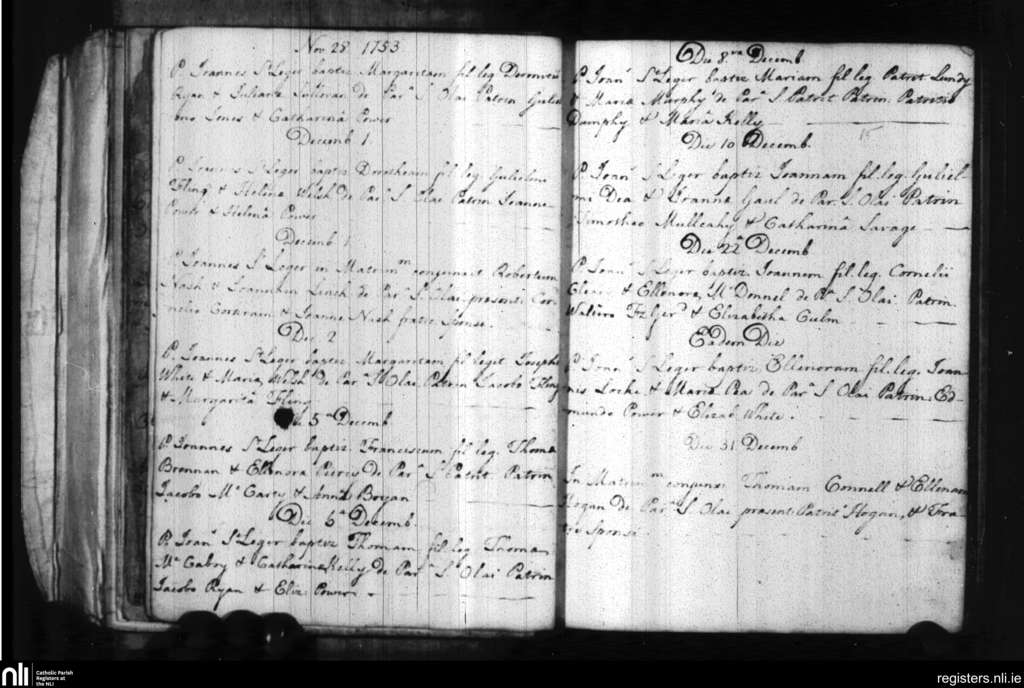 Nov 28 1753
P. Joannes St Leger baptiz Margaritam fil leg
Ryan & de Par. S. Olai Patrin Guliel
mo Jones & Catharina Power
Decemb 1.
P. Joannes St Leger baptiz Dorotheam fil. leg. Gulielmi
Fling & Helena Welsh de Par. S Olai Patrin Joanne
& Helenâ Power
Decemb 1.
P. Joannes St Leger in Matrim m conjunxit Robertum
Nash & Linch de Par. S. Olai, presenti Cor-
nelio & Joanne Nash fratre sponse.
Dec 2
P. Joannes St Leger baptiz Margaritam fil legit Josephi
White & Maria Welsh de Par. S Olai Patrin Jacobo Fling
& Margaritâ Fling
5a Decemb
P. Joannes St Leger baptiz Franciscum fil leg. Thoma
Brennan & Ellenora Piercy de Par. S Patrit Patrin
Jacobo Mc Carty & Annâ Bryan
Die 6a Decemb.
P. Joan St Leger baptiz Thomam fil. leg Thoma
Mc & Catharina Kelly de Par. S Olai Patrin
Jacobo Ryan & Eliz. Power.
Die 8va Decemb
P. Joan St Leger baptiz Mariam fil leg Patrit Lundy
& Maria Murphy de Par S. Patrit Patrin. Patritio
Dunphy & Mariâ Kelly
15
Die 10 Decemb.
P. Joan St Leger baptiz Joannam fil. leg. Guliel-
mi Dea & Joanna Gaul de Par. S. Olai Patrin
Timotheo Mullcahy & Catharinâ Savage
Die 22a Decemb
P. Joan St Leger baptiz. Joannem fil. leg. Cornelii
Cleary & Ellenora Mc Donnel de Par S. Olai Patrin.
Waltero Fzger d & Elizabetha Culm
Eadem Die
P. Joan St Leger baptiz Ellenoram fil. leg. Joan-
nis Locke & Maria Dea de Par S Olai Patrin. Ed-
mundo Power & Elizab White.
Die 31 Decemb
In Matrim m conjunxi Thomam Connell & Ellenam
Hogan de Par S Olai present. Patrit Hogan, & Fra-
tre Sponsi.
nli
Catholic Parish
Registers at
the NLI
registers.nli.ie